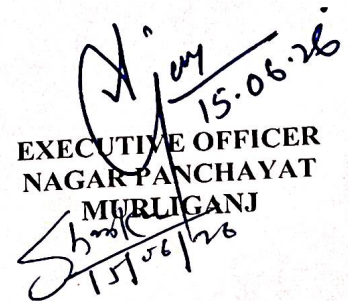 15.06.26
EXECUTIVE OFFICER
NAGAR PANCHAYAT
MURLIGANJ
15/06/26